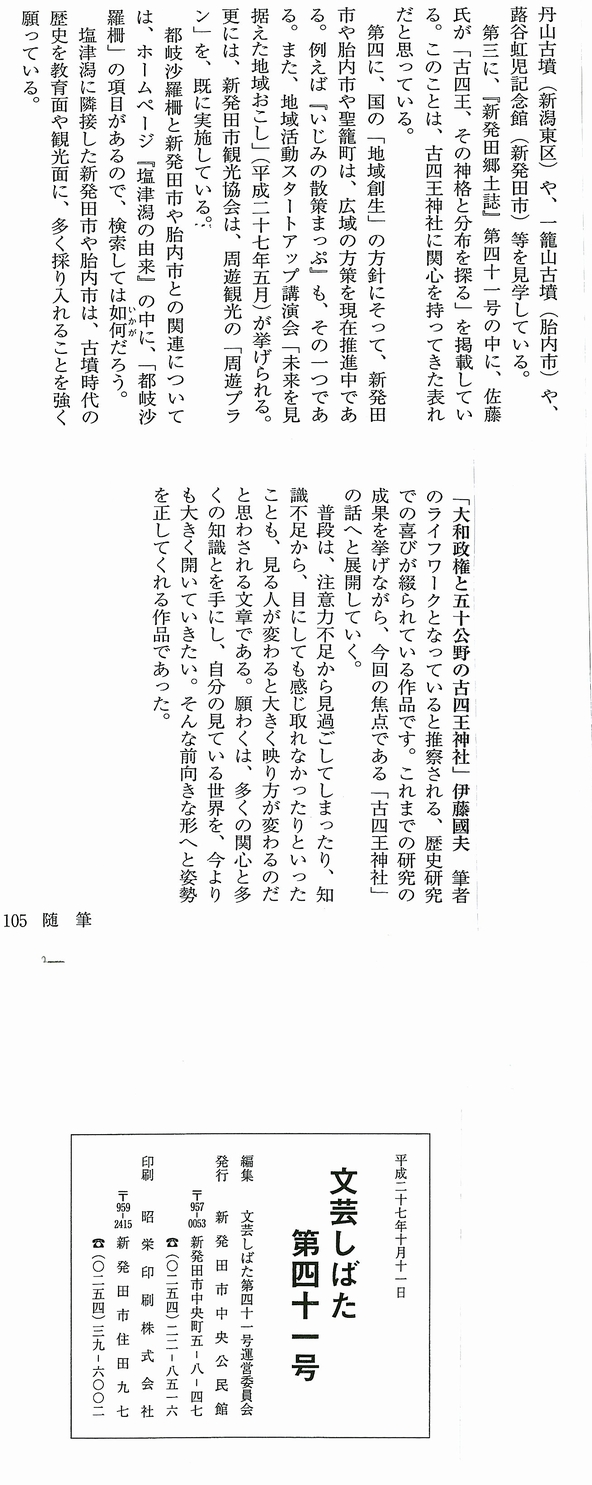 丹山古墳（新潟東区）や、一籠山古墳（胎内市）や、
蕗谷虹児記念館（新発田市）等を見学している。
第三に、『新発田郷土誌』第四十一号の中に、佐藤
氏が「古四王、その神格と分布を探る」を掲載してい
る。このことは、古四王神社に関心を持ってきた表れ
だと思っている。
第四に、国の「地域創生」の方針にそって、新発田
市や胎内市や聖籠町は、広域の方策を現在推進中であ
る。例えば『いじみの散策まっぷ』も、その一つであ
る。また、地域活動スタートアップ講演会「未来を見
据えた地域おこし」（平成二十七年五月）が挙げられる。
更には、新発田市観光協会は、周遊観光の「周遊プラ
ン」を、既に実施している。
都岐沙羅柵と新発田市や胎内市との関連について
は、ホームページ『塩津潟の由来』の中に、「都岐沙
羅柵」の項目があるので、検索しては如何だろう。
いかが
塩津潟に隣接した新発田市や胎内市は、古墳時代の
歴史を教育面や観光面に、多く採り入れることを強く
願っている。
「大和政権と五十公野の古四王神社」伊藤國夫　筆者
のライフワークとなっていると推察される、歴史研究
での喜びが綴られている作品です。これまでの研究の
成果を挙げながら、今回の焦点である「古四王神社」
の話へと展開していく。
普段は、注意力不足から見過ごしてしまったり、知
識不足から、目にしても感じ取れなかったりといった
ことも、見る人が変わると大きく映り方が変わるのだ
と思わされる文章である。願わくは、多くの関心と多
くの知識とを手にし、自分の見ている世界を、今より
も大きく開いていきたい。そんな前向きな形へと姿勢
を正してくれる作品であった。
105　随　筆
平成二十七年十月十一日
文芸しばた
第四十一号
編集　文芸しばた第四十一号運営委員会
発行　新発田市中央公民館
〒957-0053　新発田市中央町五－八－四七
☎（〇二五四）二二－八五一六
印刷　昭栄印刷株式会社
〒959-2415　新発田市住田九七
☎（〇二五四）三九－六〇〇二